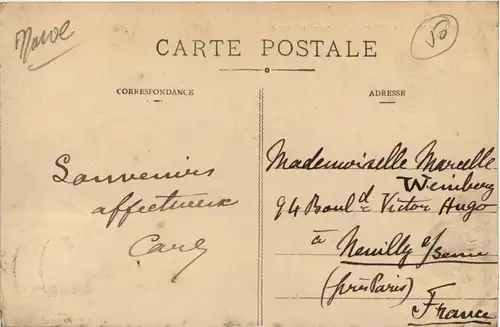 CARTE POSTALE
CORRESPONDANCE
ADRESSE
Souvenirs
affectueux
Mademoiselle Marcelle
Weinberg
94 Boul.d Victor Hugo
à Neuilly s/Seine
(près Paris)
France
50